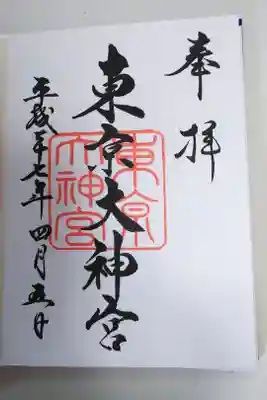 奉拝
東京大神宮
東京大神宮
平成二十七年四月五日